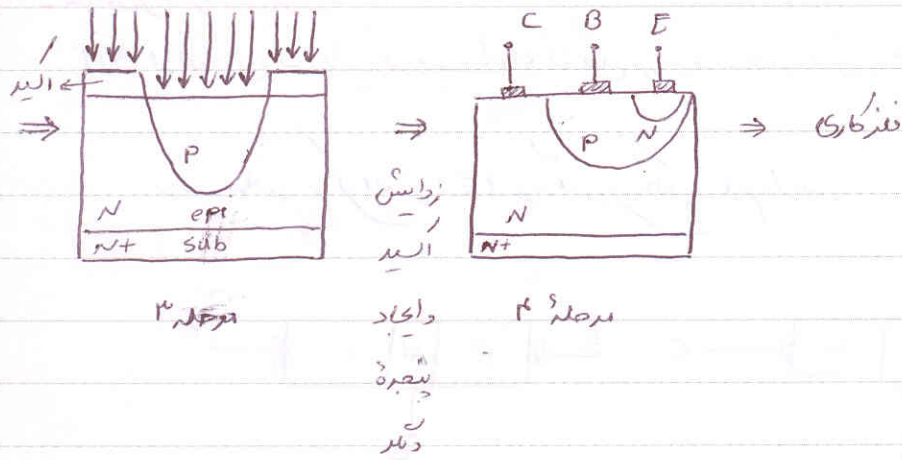 C B E
اکسید
⇒
P
N epi
N+ sub
مرحله ۳
⇒
زدایش
اکسید
وایجاد
پنجرهٔ
دیگر
P N
N
N+
مرحلهٔ ۴
⇒ فلزکاری